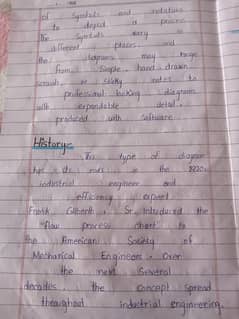 of Symbols and notations
to depict a process.
The Symbols vary in
different places and
the diagrams may range
from Simple hand drawn
Scratch or Sticky notes to
professional looking diagrams
with expandable detail,
produced with software.
History:-
This type of diagram
the 1920s
industrial engineer and
efficiency expert
Frank Gilbreth, Sr. Introduced the
"flow process chart" to
the American Society of
Mechanical Engineers. Over
the next Several
decades, the concept spread
throughout industrial engineering,